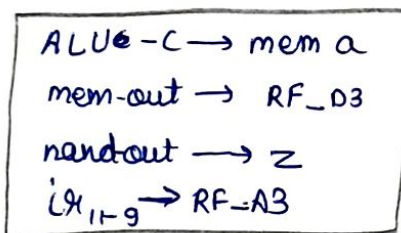 ALU-C → mem a
mem-out → RF_D3
nandout → Z
ir11-9 → RF-A3